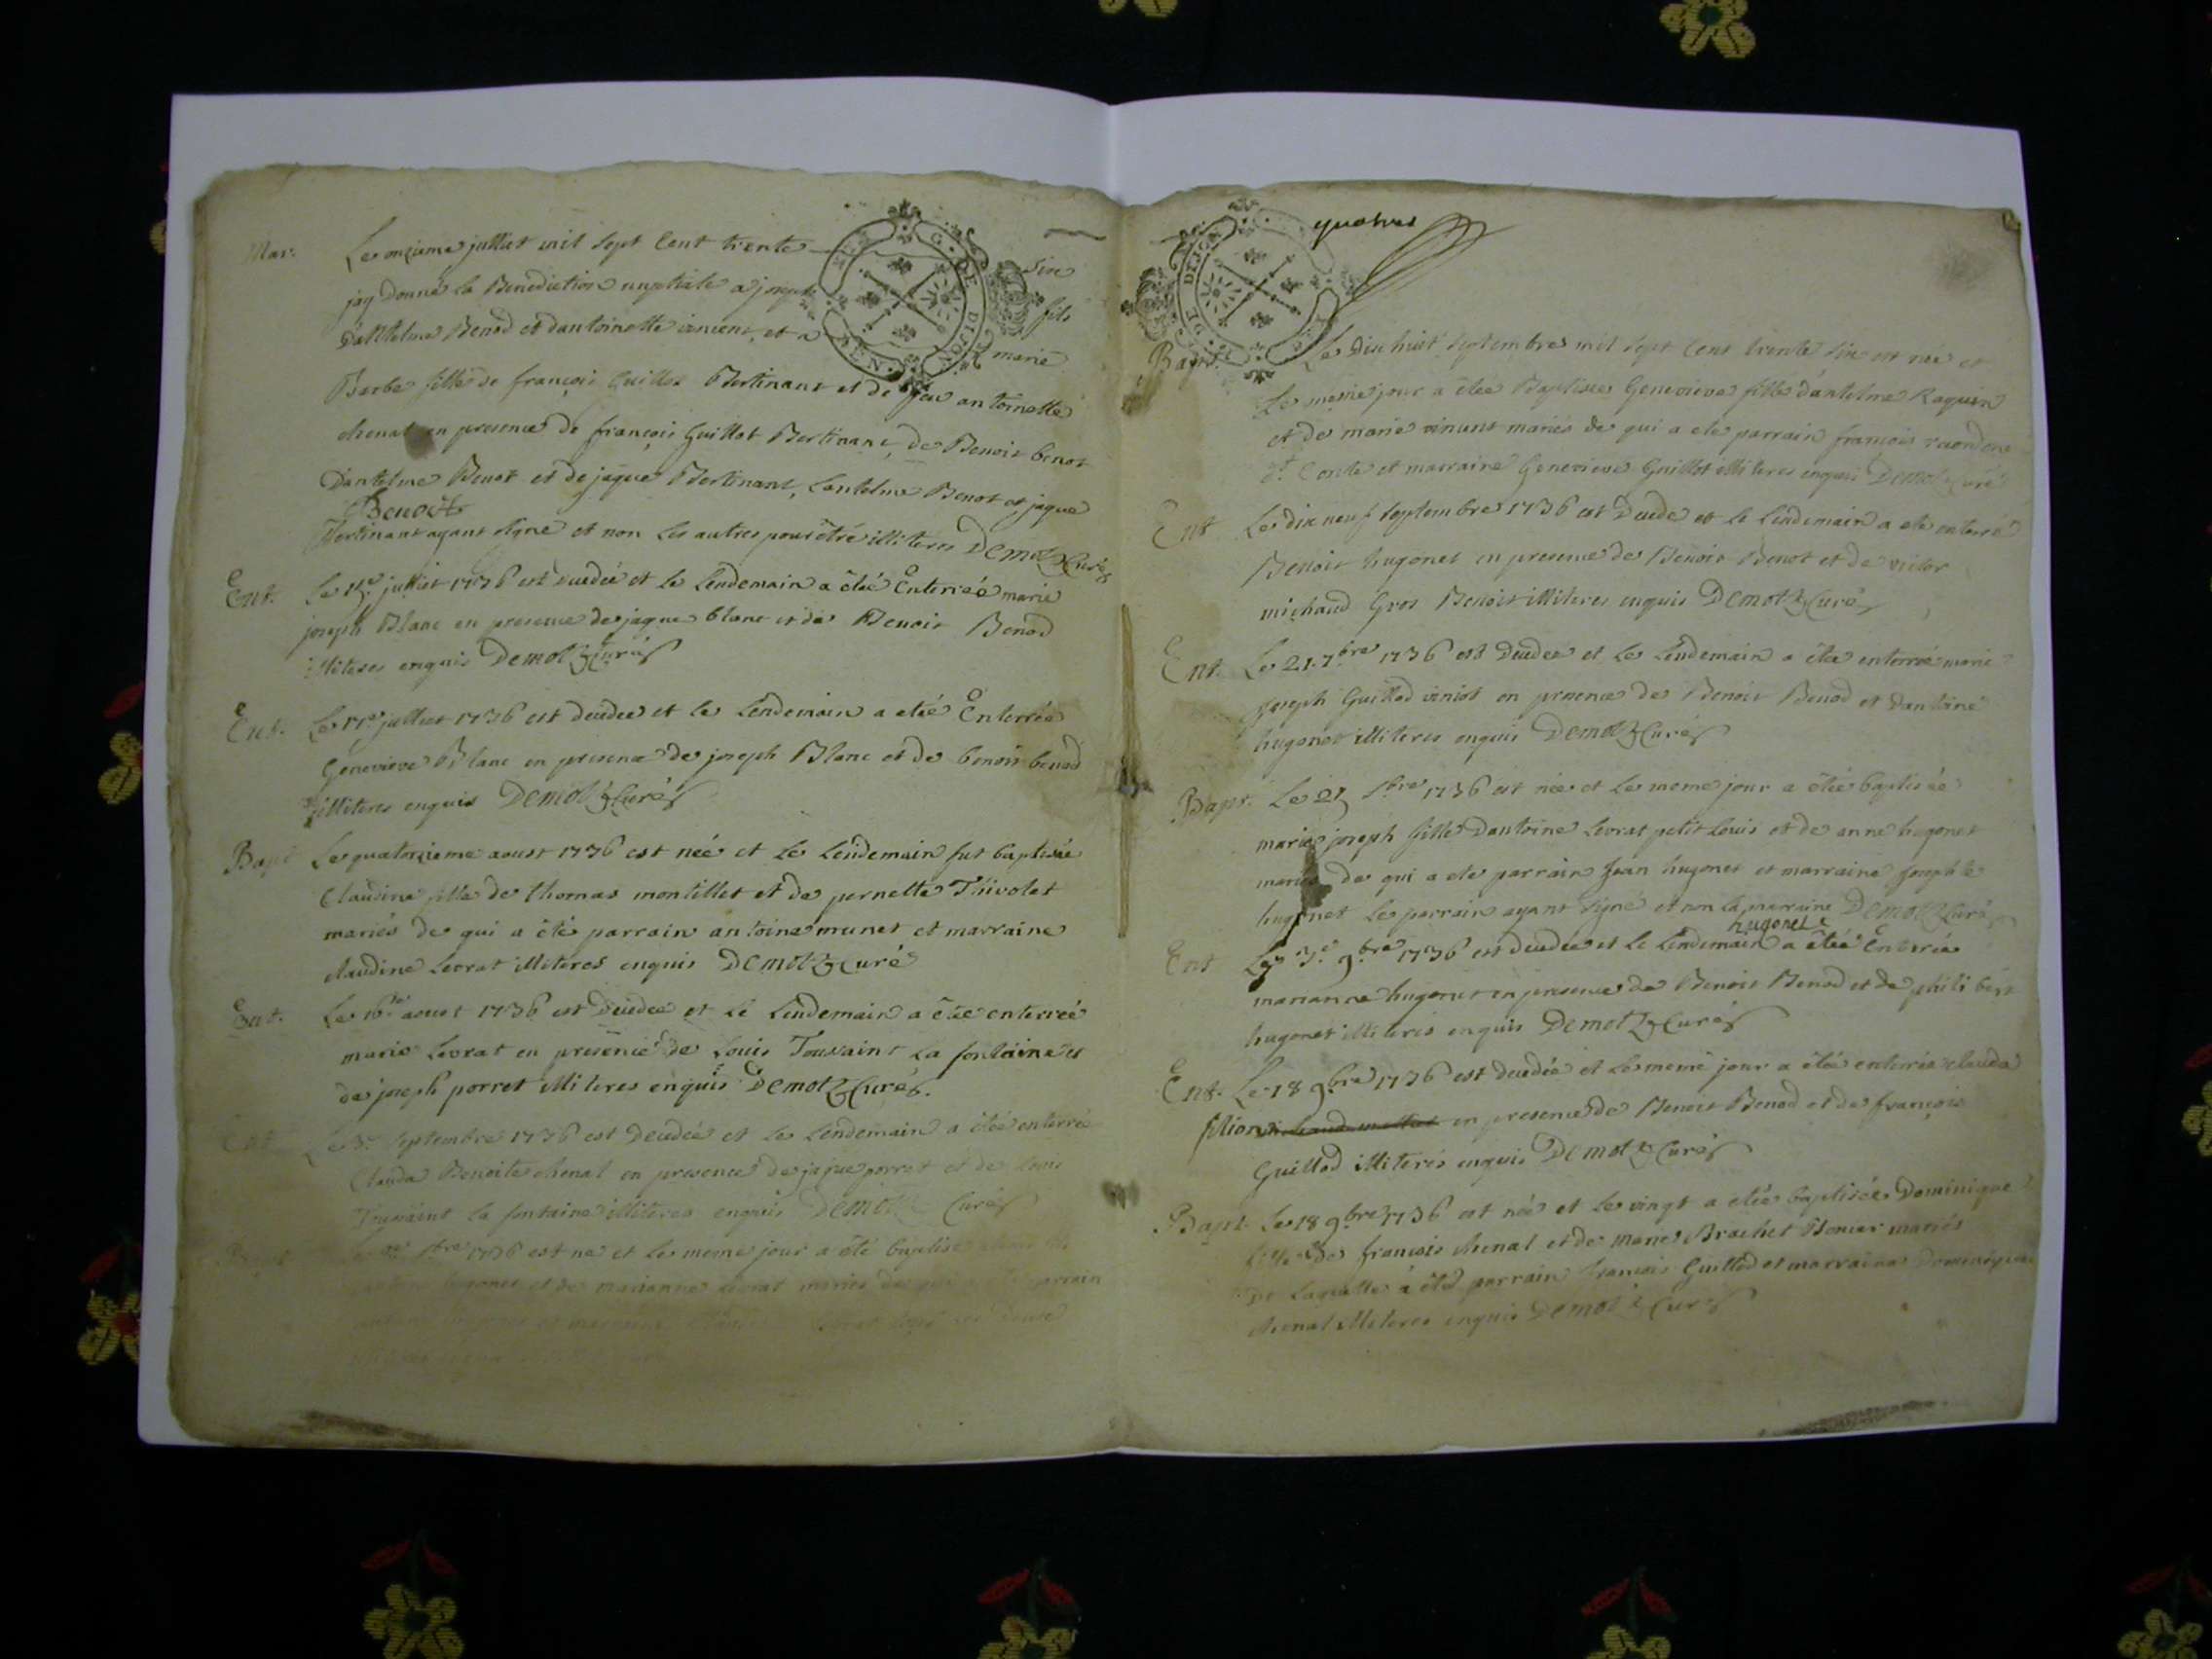 Mar. Le onzieme julliet mil sept cent trente six
jay donné la Benediction nuptiale a joseph fils
dAntelme Benod et dantoinette vincent, et a marie
Barbe fille de françois Guillot Bertinant et de feu antoinette
chenat en presence de françois Guillot Bertinant, de Benoit benot
Dantelme Benot et de jaque Bertinant, Lantelme Benot et jaque
Benoit
Bertinant ayant signé et non les autres pour être illiteres Demotz Curé
Ent. Le julliet 1736 est decedée et le lendemain a étée Enterrée marie
joseph Blanc en presence de jaque blanc et de Benoit Benod
illiteres enquis Demotz Curé
Ent. Le julliet 1736 est decedée et le Lendemain a etée Enterrée
Genevieve Blanc en presence de joseph Blanc et de benoit benod
illiteres enquis Demotz Curé
Bapt Le quatorzieme aoust 1736 est née et le Lendemain fut baptisée
Claudine fille de thomas montillet et de pernette Thivolet
mariés de qui a été parrain antoine munet et marraine
claudine Levrat illiteres enquis Demotz Curé
Ent. Le 16e aoust 1736 est decedée et le Lendemain a étée enterrée
marie Levrat en presence de Louis Toussaint La fontaine et
de joseph porret illiteres enquis Demotz Curé.
Ent Le 3e Septembre 1736 est decedée et le Lendemain a étée enterré
Clauda Benoite chenal en presence de jaque porret et de Louis
Toussaint la fontaine illiteres enquis Demotz Curé
Bapt 1736 est né et le meme jour a été baptisé
hugonet et de marianne Levrat mariés de qui a été parrain
DE DIJON
quatres
DE DIJON
Bapt. Le Dix huit septembre mil sept Cent trente six est née et
Le meme jour a étée Baptisée Genevieve fille dantelme Raquin
et de marie vincent mariés de qui a ete parrain françois
Conte et marraine Genevieve Guillot illiteres enquis Demotz Curé
Ent Le dix neuf septembre 1736 est Decede et le Lendemain a ete enterré
Benoit hugonet en presence de Benoit Benot et de victor
michaud Gros Benoit illiteres enquis Demotz Curé
Ent. Le 21. 7bre 1736 est Decedee et Le Lendemain a étée enterrée marie
joseph Guillod viniot en presence de Benoit Benod et dantoine
hugonet illiteres enquis Demotz Curé
Bapt. Le 1736 est née et Le meme jour a étée baptisée
marie joseph fille Dantoine Levrat petit Louis et de anne hugonet
mariés de qui a ete parrain jean hugonet et marraine josephte
hugonet Le parrain ayant signé et non la marraine Demotz Curé
hugonet
Ent Le 3e 9bre 1736 est decedée et le Lendemain a étée Enterrée
marianne hugonet en presence de Benoit Benod et de philibert
hugonet illiteres enquis Demotz Curé
Ent. Le 18 9bre 1736 est decedée et Le meme jour a étée enterrée clauda
filion en presence de Benoit Benod et de françois
Guillod illiteres enquis Demotz Curé
Bapt Le 18 9bre 1736 est née et Le vingt a étée baptisée Dominique
fille de françois chenal et de marie Brachet Bonier mariés
de Laquelle a été parrain françois Guillod et marraine Dominique
chenal illiteres enquis Demotz Curé